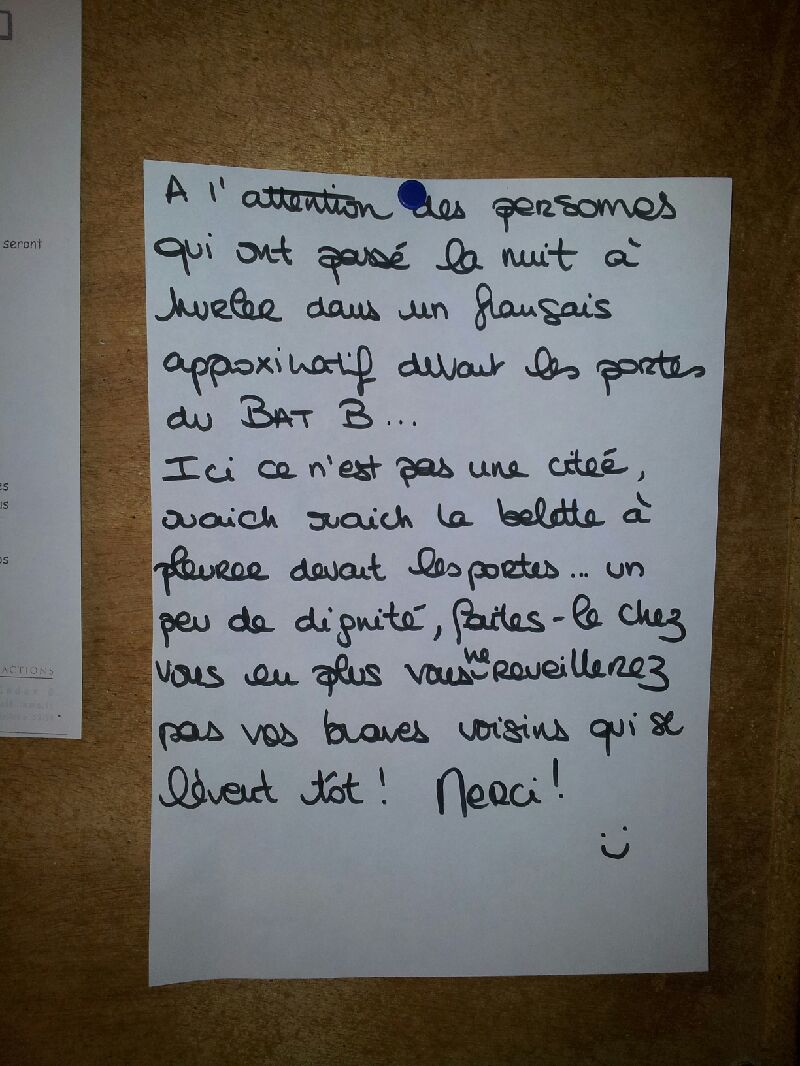 seront
es
us
os
ACTIONS
A l'attention des personnes
qui ont passé la nuit à
hurler dans un français
approximatif devant les portes
du BAT B...
Ici ce n'est pas une citeé,
waich waich la belette à
pleurer devant les portes... un
peu de dignité, faites-le chez
vous en plus vous ne reveillerez
pas vos braves voisins qui se
lèvent tôt! Merci!